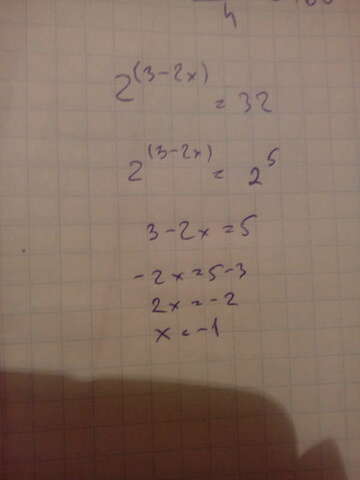 2^(3-2x) = 32
2^(3-2x) = 2^5
3-2x=5
-2x=5-3
2x=-2
x=-1